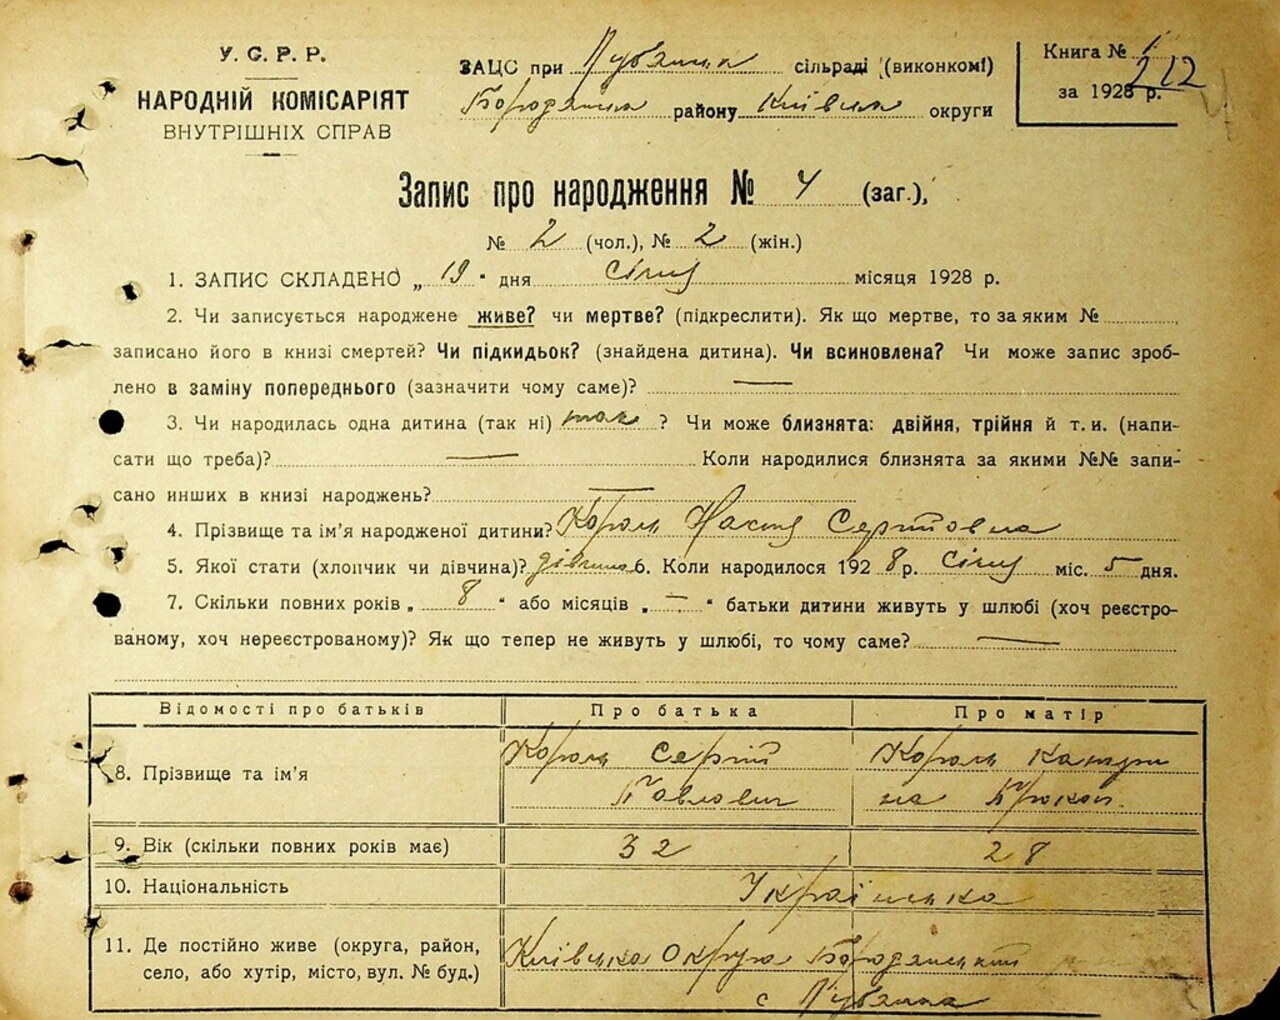 У. С. Р. Р.
НАРОДНІЙ КОМІСАРІЯТ
ВНУТРІШНІХ СПРАВ
ЗАЦС при Луб'янка сільраді (виконкомі)
Бородянка району Київська округи
Книга № 1
за 1928 р.
212
Запис про народження № 4 (заг.),
№ 2 (чол.), № 2 (жін.)
1. ЗАПИС СКЛАДЕНО „ 19 " дня січня місяця 1928 р.
2. Чи записується народжене живе? чи мертве? (підкреслити). Як що мертве, то за яким №
записано його в книзі смертей? Чи підкидьок? (знайдена дитина). Чи всиновлена? Чи може запис зроб-
лено в заміну попереднього (зазначити чому саме)? —
3. Чи народилась одна дитина (так ні) так ? Чи може близнята: двійня, трійня й т. и. (напи-
сати що треба)? — Коли народилися близнята за якими №№ запи-
сано инших в книзі народжень? —
4. Прізвище та ім'я народженої дитини? Король Сергіївна
5. Якої стати (хлопчик чи дівчина)? дівчина 6. Коли народилося 1928 р. січня міс. 5 дня.
7. Скільки повних років „ 8 " або місяців „ — " батьки дитини живуть у шлюбі (хоч реєстро-
ваному, хоч нереєстрованому)? Як що тепер не живуть у шлюбі, то чому саме? —
Відомості про батьків Про батька Про матір
8. Прізвище та ім'я Король Сергій Король Катери
Павлович на Прокоп.
9. Вік (скільки повних років має) 32 28
10. Національність Українська
11. Де постійно живе (округа, район, Київська Округа Бородянський
село, або хутір, місто, вул. № буд.) с Луб'янка